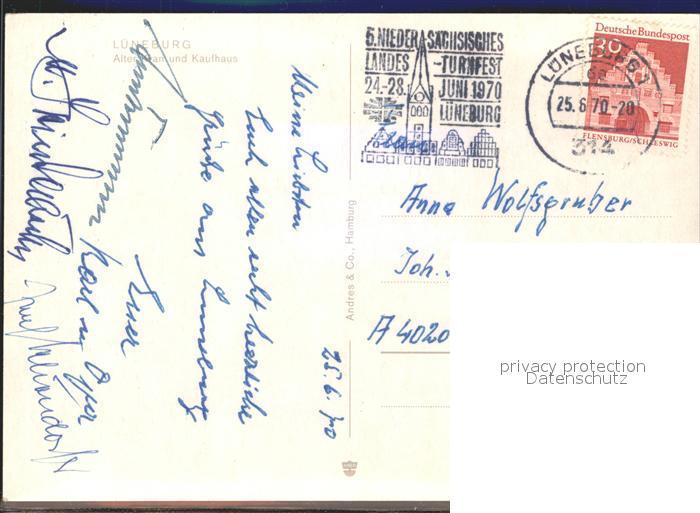 LÜNEBURG
Alter Kran und Kaufhaus
5. NIEDERSÄCHSISCHES
LANDES-TURNFEST
24-28. JUNI 1970
LÜNEBURG
LÜNEBURG 1
25.6.70-20
314
Deutsche Bundespost
30
FLENSBURG/SCHLESWIG
25.6.70
Meine Liebsten
Euch allen recht herzliche
Grüße aus Lüneburg
Euer
Karl u.
Andres & Co., Hamburg
Anna Wolfsgruber
Joh.
A 4020
privacy protection
Datenschutz